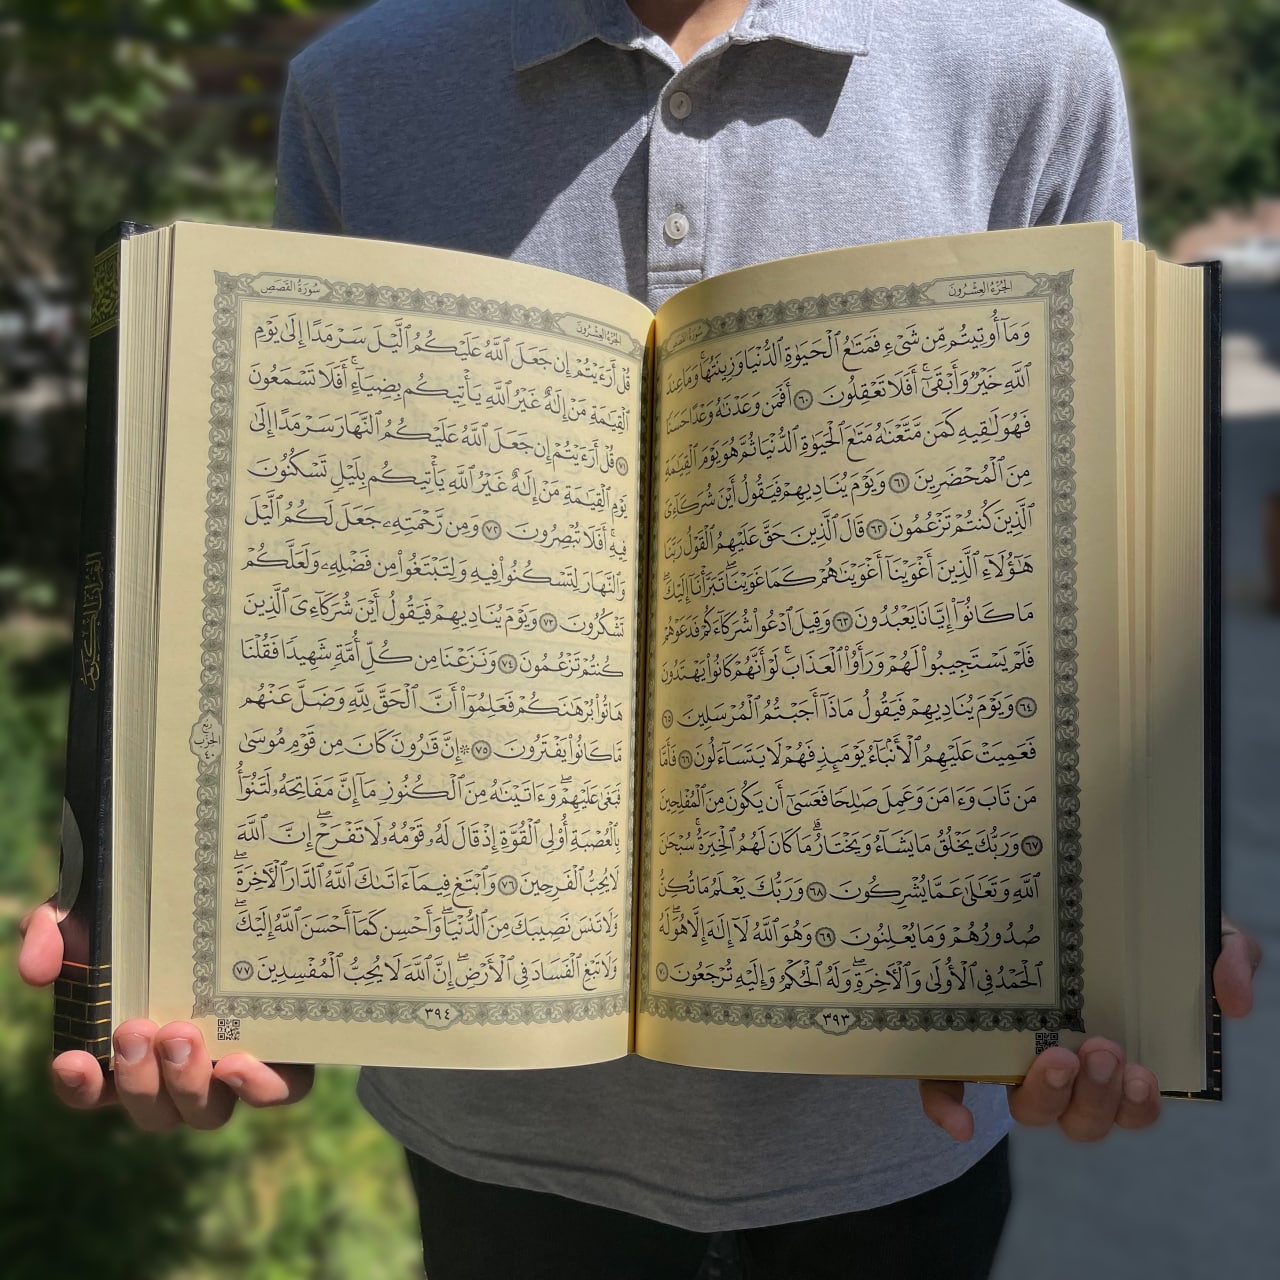 الجُزْءُ العِشْرُونَ
سُورَةُ القَصَصِ
وَمَآ أُوتِيتُم مِّن شَىْءٍ فَمَتَـٰعُ ٱلْحَيَوٰةِ ٱلدُّنْيَا وَزِينَتُهَا ۚ وَمَا عِندَ
ٱللَّهِ خَيْرٌ وَأَبْقَىٰٓ ۚ أَفَلَا تَعْقِلُونَ ٦٠ أَفَمَن وَعَدْنَـٰهُ وَعْدًا حَسَنًا
فَهُوَ لَـٰقِيهِ كَمَن مَّتَّعْنَـٰهُ مَتَـٰعَ ٱلْحَيَوٰةِ ٱلدُّنْيَا ثُمَّ هُوَ يَوْمَ ٱلْقِيَـٰمَةِ
مِنَ ٱلْمُحْضَرِينَ ٦١ وَيَوْمَ يُنَادِيهِمْ فَيَقُولُ أَيْنَ شُرَكَآءِىَ
ٱلَّذِينَ كُنتُمْ تَزْعُمُونَ ٦٢ قَالَ ٱلَّذِينَ حَقَّ عَلَيْهِمُ ٱلْقَوْلُ رَبَّنَا
هَـٰٓؤُلَآءِ ٱلَّذِينَ أَغْوَيْنَآ أَغْوَيْنَـٰهُمْ كَمَا غَوَيْنَا ۖ تَبَرَّأْنَآ إِلَيْكَ ۖ
مَا كَانُوٓا۟ إِيَّانَا يَعْبُدُونَ ٦٣ وَقِيلَ ٱدْعُوا۟ شُرَكَآءَكُمْ فَدَعَوْهُمْ
فَلَمْ يَسْتَجِيبُوا۟ لَهُمْ وَرَأَوُا۟ ٱلْعَذَابَ ۚ لَوْ أَنَّهُمْ كَانُوا۟ يَهْتَدُونَ
٦٤ وَيَوْمَ يُنَادِيهِمْ فَيَقُولُ مَاذَآ أَجَبْتُمُ ٱلْمُرْسَلِينَ ٦٥
فَعَمِيَتْ عَلَيْهِمُ ٱلْأَنۢبَآءُ يَوْمَئِذٍ فَهُمْ لَا يَتَسَآءَلُونَ ٦٦ فَأَمَّا
مَن تَابَ وَءَامَنَ وَعَمِلَ صَـٰلِحًا فَعَسَىٰٓ أَن يَكُونَ مِنَ ٱلْمُفْلِحِينَ
٦٧ وَرَبُّكَ يَخْلُقُ مَا يَشَآءُ وَيَخْتَارُ ۗ مَا كَانَ لَهُمُ ٱلْخِيَرَةُ ۚ سُبْحَـٰنَ
ٱللَّهِ وَتَعَـٰلَىٰ عَمَّا يُشْرِكُونَ ٦٨ وَرَبُّكَ يَعْلَمُ مَا تُكِنُّ
صُدُورُهُمْ وَمَا يُعْلِنُونَ ٦٩ وَهُوَ ٱللَّهُ لَآ إِلَـٰهَ إِلَّا هُوَ ۖ لَهُ
ٱلْحَمْدُ فِى ٱلْأُولَىٰ وَٱلْـَٔاخِرَةِ ۖ وَلَهُ ٱلْحُكْمُ وَإِلَيْهِ تُرْجَعُونَ ٧٠
٣٩٣
الجُزْءُ العِشْرُونَ
سُورَةُ القَصَصِ
قُلْ أَرَءَيْتُمْ إِن جَعَلَ ٱللَّهُ عَلَيْكُمُ ٱلَّيْلَ سَرْمَدًا إِلَىٰ يَوْمِ
ٱلْقِيَـٰمَةِ مَنْ إِلَـٰهٌ غَيْرُ ٱللَّهِ يَأْتِيكُم بِضِيَآءٍ ۖ أَفَلَا تَسْمَعُونَ
٧١ قُلْ أَرَءَيْتُمْ إِن جَعَلَ ٱللَّهُ عَلَيْكُمُ ٱلنَّهَارَ سَرْمَدًا إِلَىٰ
يَوْمِ ٱلْقِيَـٰمَةِ مَنْ إِلَـٰهٌ غَيْرُ ٱللَّهِ يَأْتِيكُم بِلَيْلٍ تَسْكُنُونَ
فِيهِ ۖ أَفَلَا تُبْصِرُونَ ٧٢ وَمِن رَّحْمَتِهِۦ جَعَلَ لَكُمُ ٱلَّيْلَ
وَٱلنَّهَارَ لِتَسْكُنُوا۟ فِيهِ وَلِتَبْتَغُوا۟ مِن فَضْلِهِۦ وَلَعَلَّكُمْ
تَشْكُرُونَ ٧٣ وَيَوْمَ يُنَادِيهِمْ فَيَقُولُ أَيْنَ شُرَكَآءِىَ ٱلَّذِينَ
كُنتُمْ تَزْعُمُونَ ٧٤ وَنَزَعْنَا مِن كُلِّ أُمَّةٍ شَهِيدًا فَقُلْنَا
هَاتُوا۟ بُرْهَـٰنَكُمْ فَعَلِمُوٓا۟ أَنَّ ٱلْحَقَّ لِلَّهِ وَضَلَّ عَنْهُم
مَّا كَانُوا۟ يَفْتَرُونَ ٧٥ ۞ إِنَّ قَـٰرُونَ كَانَ مِن قَوْمِ مُوسَىٰ
فَبَغَىٰ عَلَيْهِمْ ۖ وَءَاتَيْنَـٰهُ مِنَ ٱلْكُنُوزِ مَآ إِنَّ مَفَاتِحَهُۥ لَتَنُوٓأُ
بِٱلْعُصْبَةِ أُو۟لِى ٱلْقُوَّةِ إِذْ قَالَ لَهُۥ قَوْمُهُۥ لَا تَفْرَحْ ۖ إِنَّ ٱللَّهَ
لَا يُحِبُّ ٱلْفَرِحِينَ ٧٦ وَٱبْتَغِ فِيمَآ ءَاتَىٰكَ ٱللَّهُ ٱلدَّارَ ٱلْـَٔاخِرَةَ ۖ
وَلَا تَنسَ نَصِيبَكَ مِنَ ٱلدُّنْيَا ۖ وَأَحْسِن كَمَآ أَحْسَنَ ٱللَّهُ إِلَيْكَ ۖ
وَلَا تَبْغِ ٱلْفَسَادَ فِى ٱلْأَرْضِ ۖ إِنَّ ٱللَّهَ لَا يُحِبُّ ٱلْمُفْسِدِينَ ٧٧
٣٩٤
ربع
الحزب
٤٠
القرآن الكريم